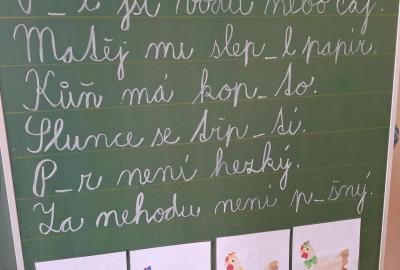 P_l jsi vodu nebo čaj.
Matěj mi slep_l papír.
Kůň má kop_to.
Slunce se třp_tí.
P_r není hezký.
Za nehodu není p_šný.